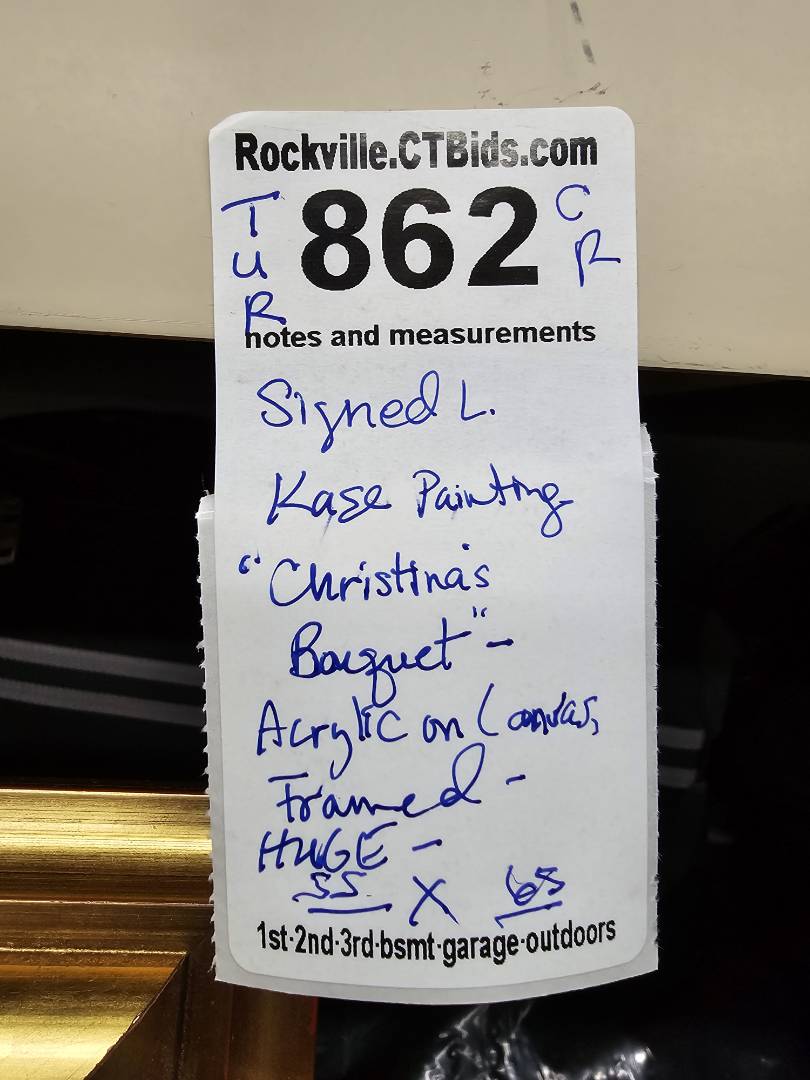 Rockville.CTBids.com
TUR 862 CR
notes and measurements
Signed L.
Kase Painting
"Christina's
Bouquet" -
Acrylic on Canvas,
Framed -
HUGE -
55 X 65
1st·2nd·3rd·bsmt·garage·outdoors